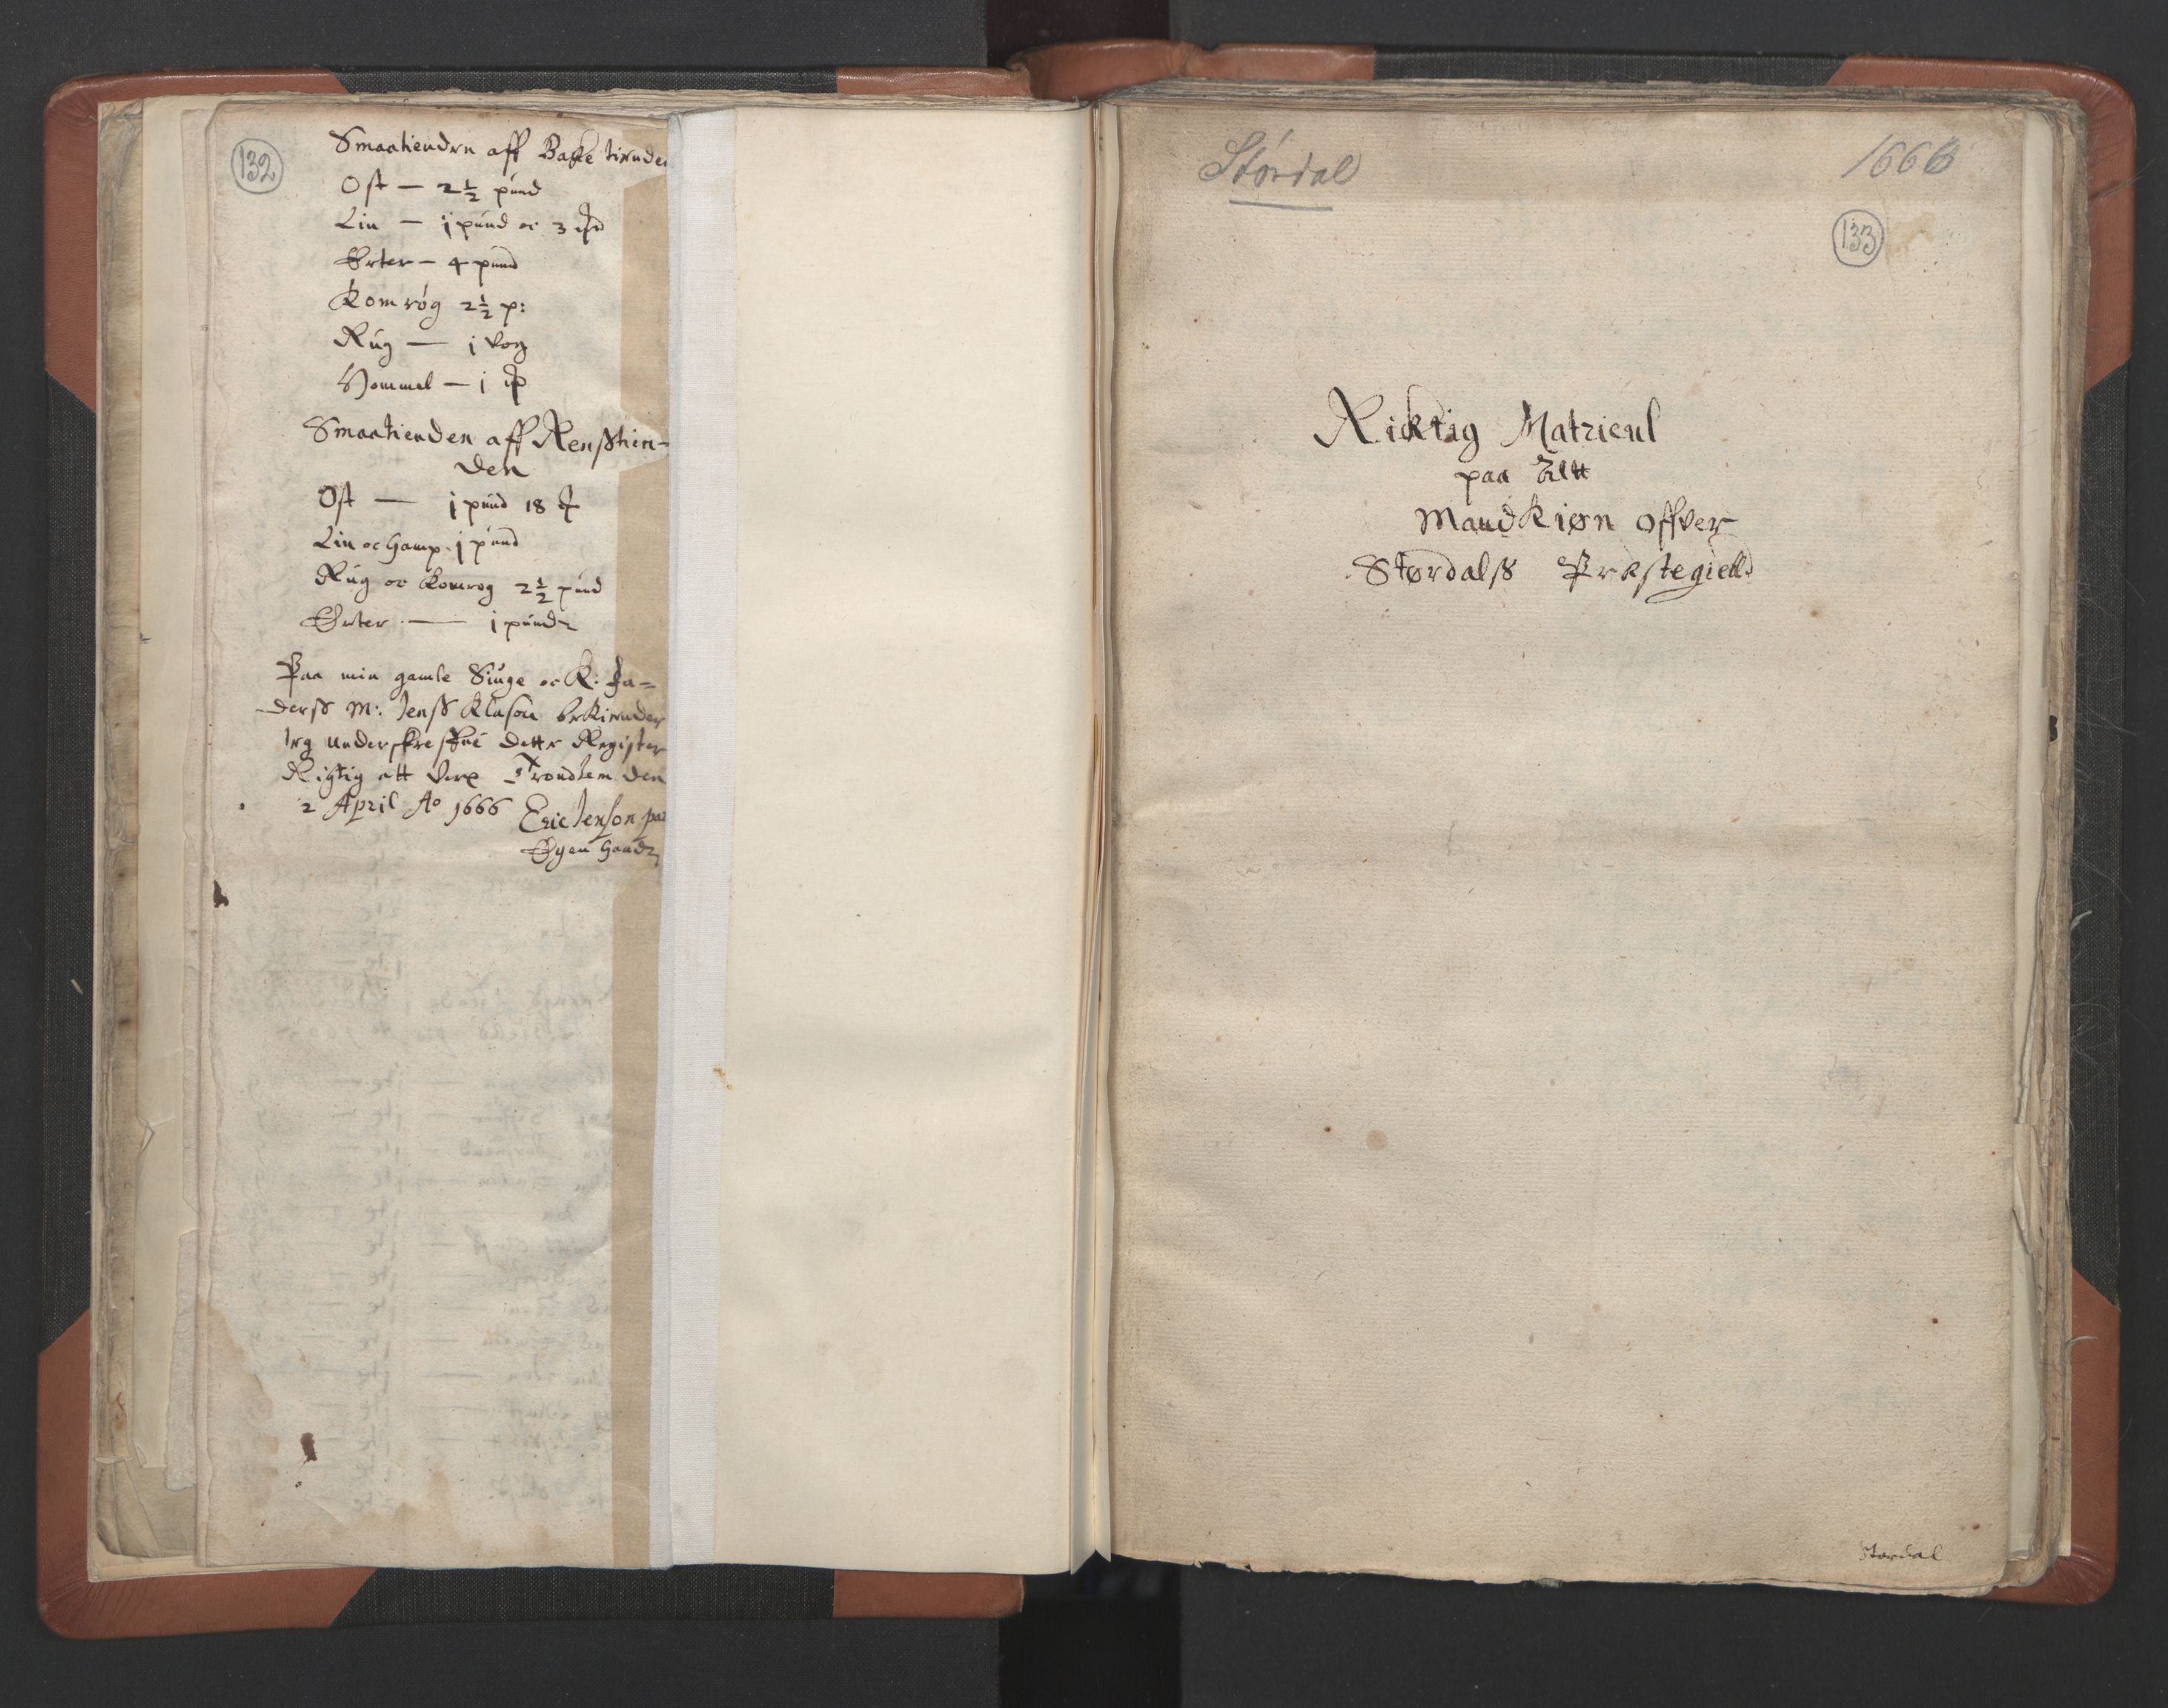 132
Smaatienden aff Bakke tienden
Ost — 2½ pund
Lin — j pund oc 3
Erter — 4 pund
Komrøg 2½ p:
Rug — j vog
Hommel — j
Smaatienden aff Rensstien-
den
Ost — j pund 18
Lin oc Hamp j pund
Rug oc Komrog 2½ pund
Erter — j pund
Paa min gamle Siuge oc K: Fa-
derss M: Jenss Klason bekiender
Jeg underskrefne dette Register
Rigtig att Være Trondhem den
2 April Ao 1666 Eric Jenson paa
Egen Haand
Størdal
1666
133
Ricktig Matricul
paa Alt
Mandkiøn offver
Størdalss Prestegield
Størdal